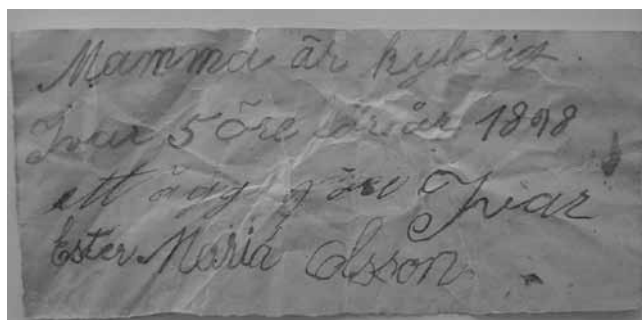 Mamma är kyldig.
Ivar 5 öre för år 1898
ett ägg Ivar
Ester Maria Olsson